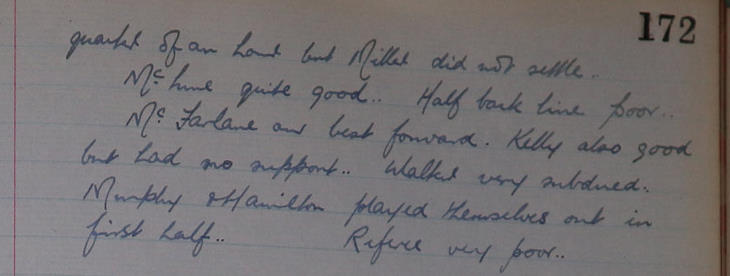 172
quarter of an hour but Millar did not settle..
Mc quite good.. Half back line poor..
Mc Farlane our best forward. Kelly also good
but had no support.. Walker very subdued.
Murphy & Hamilton played themselves out in
first half.. Referee very poor..